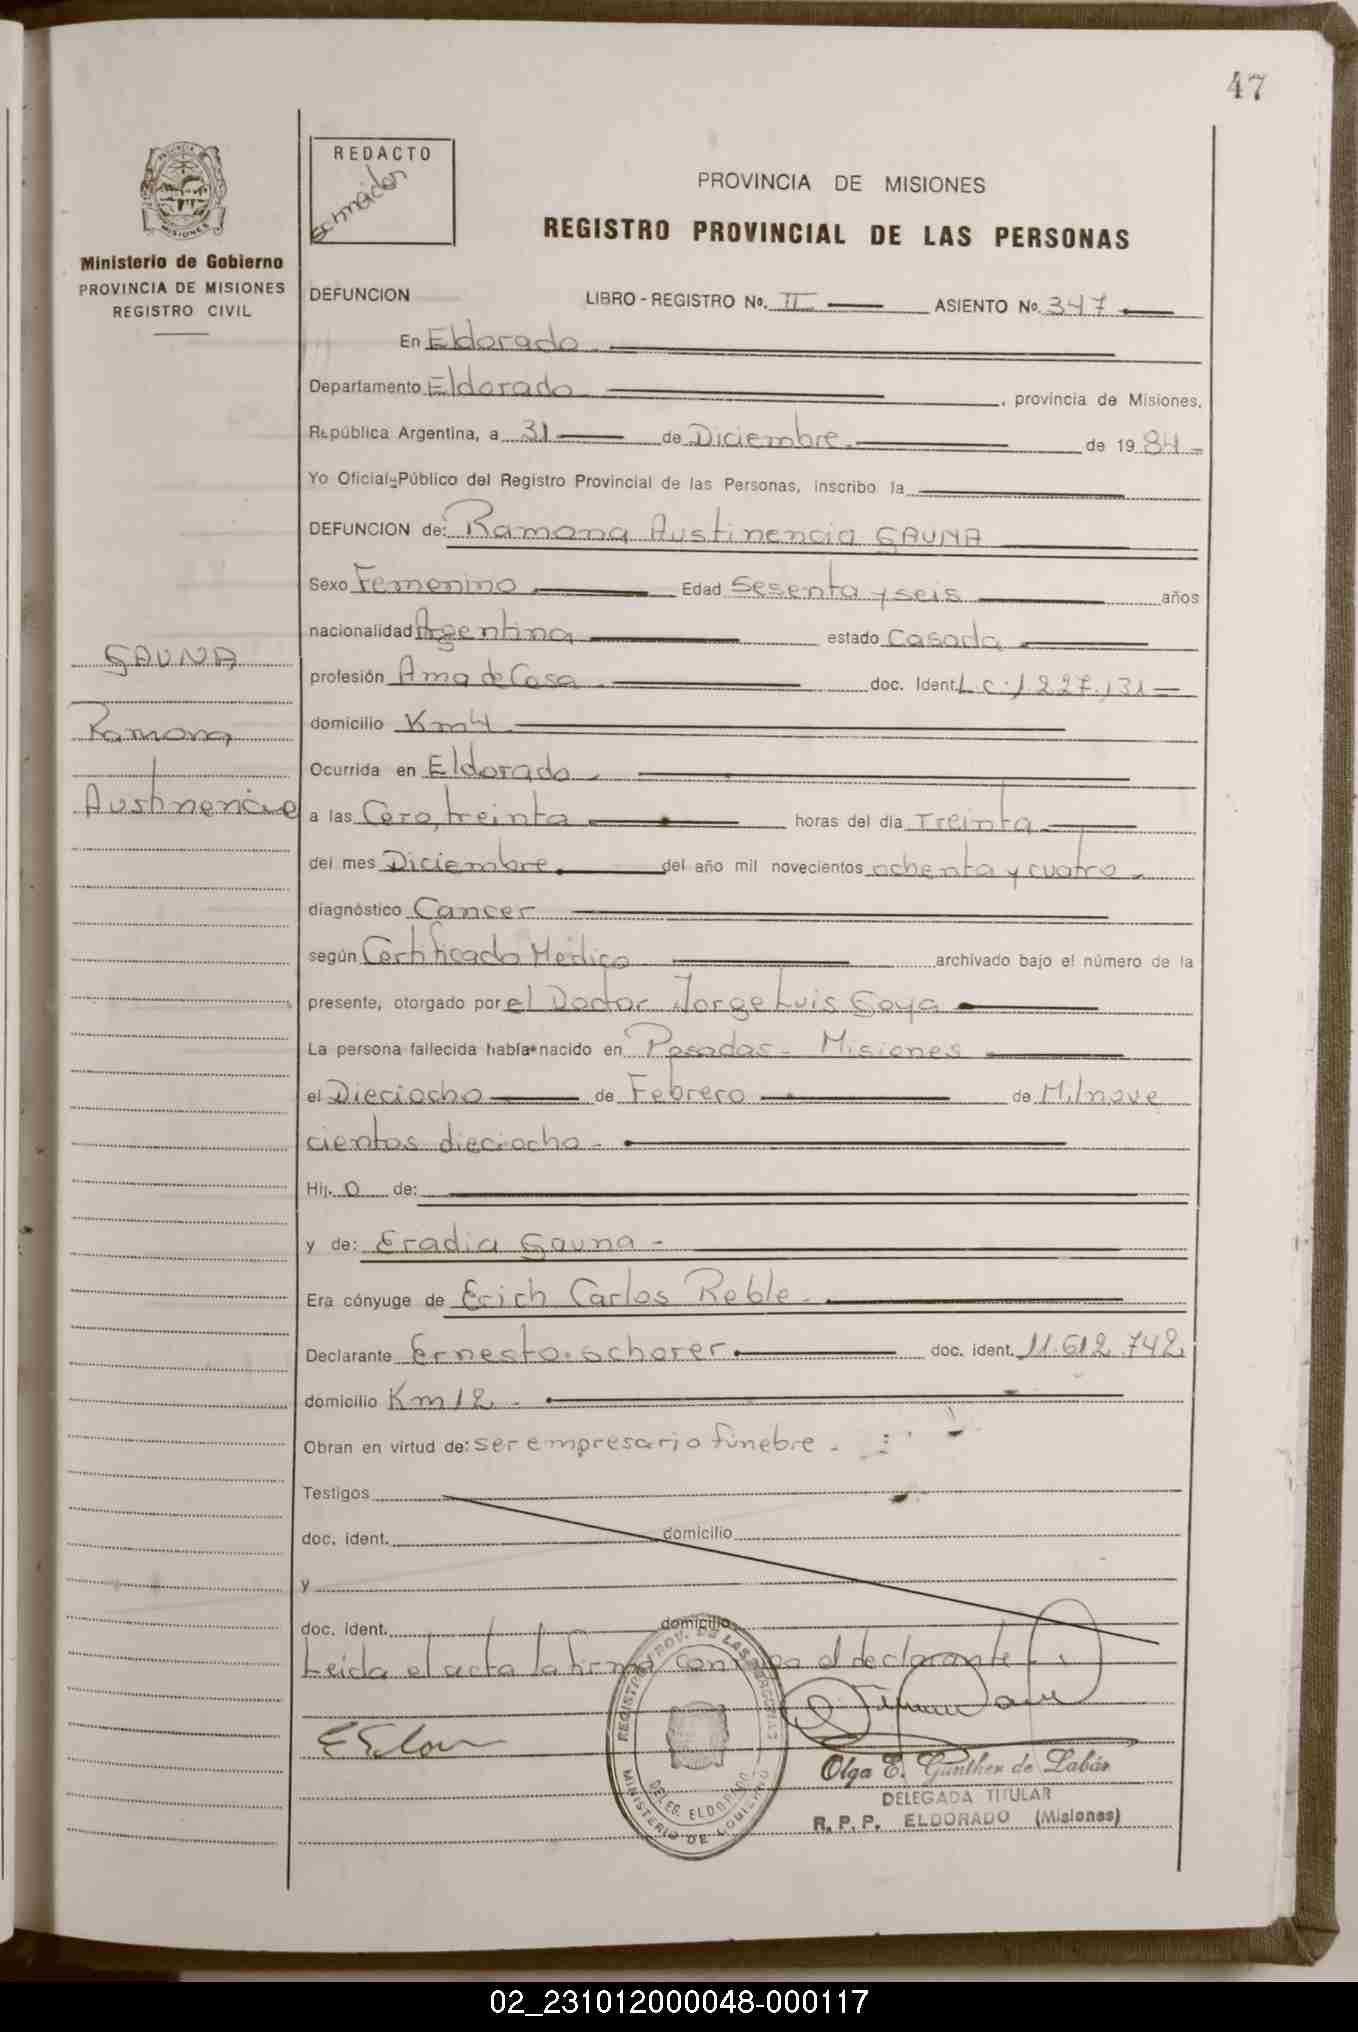 47
REDACTO
Schneider
PROVINCIA DE MISIONES
REGISTRO PROVINCIAL DE LAS PERSONAS
Ministerio de Gobierno
PROVINCIA DE MISIONES
REGISTRO CIVIL
DEFUNCION LIBRO - REGISTRO No. II ASIENTO No. 347
En Eldorado
Departamento Eldorado , provincia de Misiones,
República Argentina, a 31 de Diciembre de 1984
Yo Oficial Público del Registro Provincial de las Personas, inscribo la
DEFUNCION de: Ramona Austinencia GAUNA
Sexo Femenino Edad Sesenta y seis años
nacionalidad Argentina estado Casada
GAUNA
profesión Ama de Casa doc. Ident. L.C. 1.227.131
Ramona
domicilio Km 4
Ocurrida en Eldorado
Austinencia
a las Cero, treinta horas del día Treinta
del mes Diciembre del año mil novecientos ochenta y cuatro
diagnóstico Cancer
según Certificado Médico archivado bajo el número de la
presente, otorgado por el Doctor Jorge Luis Goya
La persona fallecida había nacido en Posadas - Misiones
el Dieciocho de Febrero de Milnove
cientos dieciocho
Hij. o de:
y de: Eradia Gauna
Era cónyuge de Erich Carlos Reble
Declarante Ernesto schorer doc. ident. 11.612.742
domicilio Km 12
Obran en virtud de: ser empresario funebre
Testigos
doc. ident. domicilio
y
doc. ident. domicilio
Leida el acta la firma conmigo el declarante
REGISTRO PROV. DE LAS PERSONAS
DELEG. ELDORADO
MINISTERIO DE GOBIERNO
Olga E. Günther de Labás
DELEGADA TITULAR
R. P. P. ELDORADO (Misiones)
02_231012000048-000117